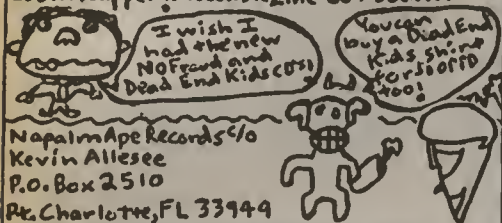 I wish I
had the new
NO Fraud and
Dead End Kids CDs!
You can
buy a Dead End
Kids shirt
for $10 PPD
too!
Napalm Ape Records c/o
Kevin Allesee
P.O. Box 2510
Pt. Charlotte, FL 33949